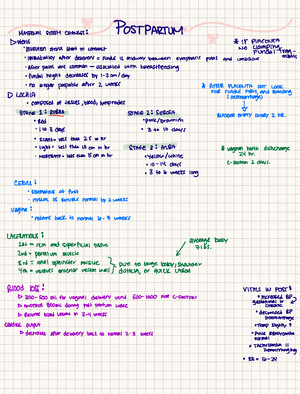 POSTPARTUM
MATERNAL BODY CHANGES:
▷ Uterus
• Uterus starts to contract
• immediately after delivery: fundus is midway between symphysis pubis and umbilicus
• After pains are common - associated with breastfeeding
• fundal height decreases by 1-2 cm / day
• no longer palpable after 2 weeks
* IF PLACENTA
NO CLAMPING,
▷ LOCHIA
• composed of tissues, blood, lymph nodes
STAGE 1: RUBRA
• Red
• 1 to 3 days
• scant = less than 2.5 in hr
• light = less than 10 cm in hr
• moderate = less than 15 cm in hr
STAGE 2: SEROSA
• pink/brownish
• 3 to 10 days
STAGE 3: ALBA
• yellow/white
• 10-14 days
• 3 to 6 weeks long
* AFTER PLACENTA OUT LOOK
FOR FUNDUS FIRM, AND BLEEDING
(hemorrhage)
BLADDER EMPTY EVERY 2 HR.
* vaginal birth discharge
24 hr.
C-section 2 days.
Cervix:
• Edematous at first
Vagina:
• returns back to normal 6-8 weeks
LACERATIONS:
1st = skin and superficial tissue
2nd = perineum muscle
3rd = anal sphincter muscle
4th = anterior rectal wall
DUE to large baby, shoulder
dystocia, or quick labor
average baby
7 lbs.
BLOOD loss:
▷ 200-500 ml for vaginal delivery and 600-1000 ml C-section
▷ Returns blood volume in 3-4 weeks
CARDIAC OUTPUT
▷ decreases after delivery back to normal 2-3 weeks
VITALS IN POST:
• increased BP
gestational or chronic
• decreased BP
hemorrhage
• Temp slightly ↑
• Tachycardia is
hemorrhaging
• RR = 16-24